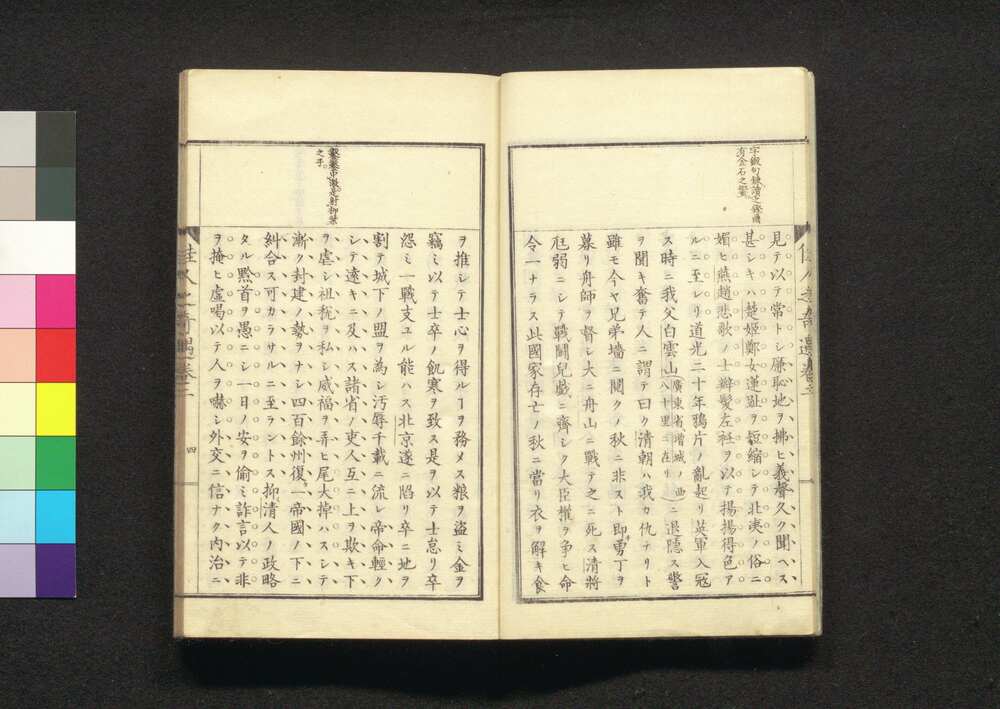 字鍛句錬讀之鏗爾
有金石之聲
見テ以テ常トシ廉恥地ヲ拂ヒ義聲久ク聞ヘス
甚シキハ楚姬鄭女蓮趾ヲ短縮シテ北洟ノ俗ニ
媚ヒ燕趙悲歌ノ士辮髮左衽ヲ以テ揚揚得色ア
ルニ至レリ道光二十年鴉片ノ亂起リ英軍入寇
ス時ニ我父白雲山廣東省增城ノ西八十里ニ在リニ退隱ス警
ヲ聞キ奮テ人ニ謂テ曰ク清朝ハ我カ仇ナリト
雖モ今ヤ兄弟墻ニ鬩クノ秋ニ非スト即勇丁ヲ
募リ舟師ヲ督シ大ニ舟山ニ戰テ之ニ死ス清將
尫弱ニシテ戰鬪兒戲ニ齊シク大臣權ヲ争ヒ命
令一ナラス此國家存亡ノ秋ニ當リ衣ヲ解キ食
佳人之奇遇卷二
之手
ヲ推シテ士心ヲ得ルヿヲ務メス粮ヲ盜ミ金ヲ
竊ミ以テ士卒ノ飢寒ヲ致ス是ヲ以テ士怠リ卒
怨ミ一戰支ユル能ハス北京遂ニ陷リ卒ニ地ヲ
割テ城下ノ盟ヲ為シ汚辱千載ニ流レ帝命輕ク
シテ遠キニ及ハス諸省ノ吏人互ニ上ヲ欺キ下
ヲ虐シ祖稅ヲ私シ威福ヲ弄ヒ尾大掉ハスシテ
漸ク封建ノ勢ヲナシ四百餘州復一帝國ノ下ニ
糾合ス可カラサルニ至ラントス抑清人ノ政略
タル黔首ヲ愚ニシ一日ノ安ヲ偷ミ詐言以テ非
ヲ掩ヒ虛喝以テ人ヲ嚇シ外交ニ信ナク內治ニ
佳人之奇遇卷二
四